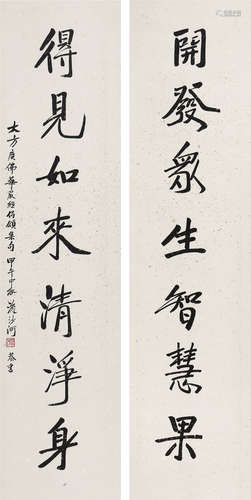 開發眾生智慧果
得見如來清淨身
大方廣佛華嚴經偈頌集句 甲午中秋 流沙河 恭書